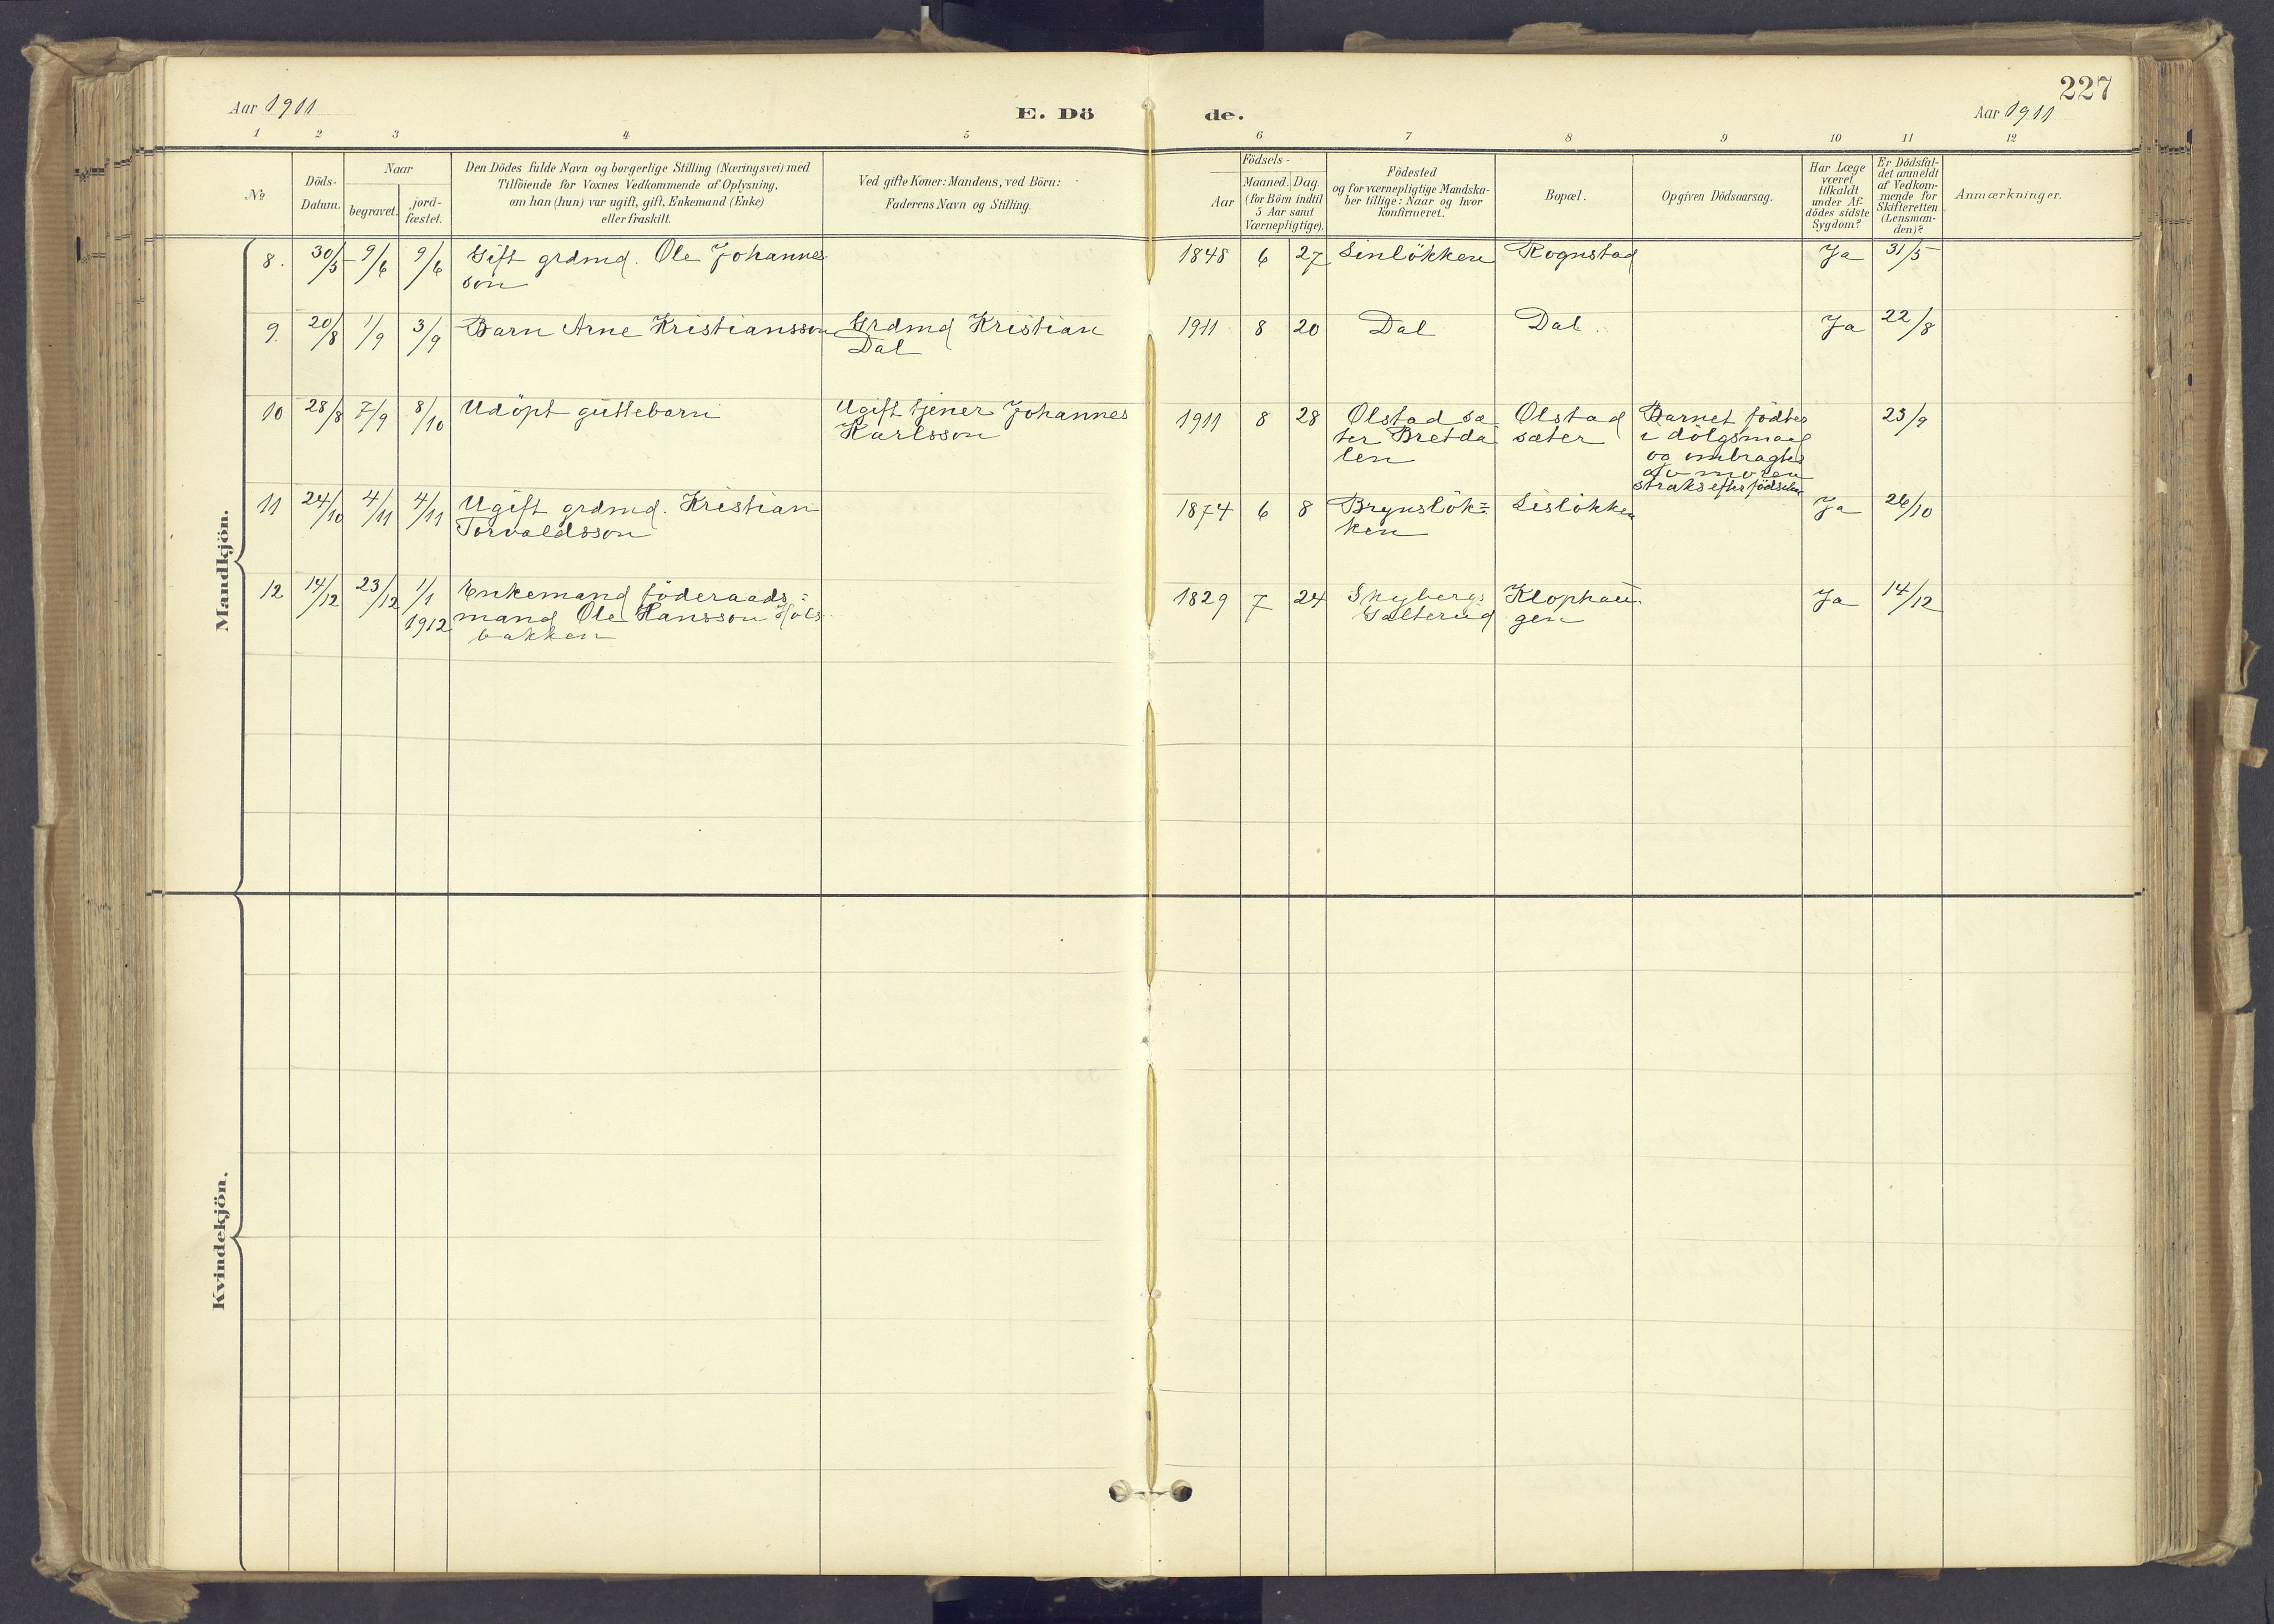 227
Aar 1911
E. Dö
de.
Aar 1911
1 2 3 4 5 6 7 8 9 10 11 12
№
Döds-
Datum.
Naar
begravet.
jord-
fæstet.
Den Dödes fulde Navn og borgerlige Stilling (Næringsvei) med
Tilföiende for Voxnes Vedkommende af Oplysning,
om han (hun) var ugift, gift, Enkemand (Enke)
eller fraskilt.
Ved gifte Koner: Mandens, ved Börn:
Faderens Navn og Stilling.
Födsels-
Aar
Maaned. Dag
(for Börn indtil
5 Aar samt
Værnepligtige).
Födested
og for værnepligtige Mandska-
ber tillige: Naar og hvor
konfirmeret.
Bopæl.
Opgiven Dödsaarsag.
Har Læge
været
tilkaldt
under Af-
dödes sidste
Sygdom?
Er Dödsfal-
det anmeldt
af Vedkom-
mende for
Skifteretten
(Lensman-
den)?
Anmærkninger.
Mandkjön.
8. 30/5 9/6 9/6 Gift grdmd. Ole Johannes 1848 6 27 Linlökken Rognstad Ja 31/5
son
9. 20/8 1/9 3/9 Barn Arne Kristiansson Grdmd Kristian 1911 8 20 Dal Dal. Ja 22/8
Dal
10 28/8 7/9 8/10 Udöpt guttebarn Ugift tjener Johannes 1911 8 28 Olstad sæ Olstad Barnet födtes 23/9
Karlsson ter Bretda sæter i dölgsmaal
len og ombragtes
av moren
straks efter födselen
11 24/10 4/11 4/11 Ugift grdmd. Kristian 1874 6 8 Brynslök= Lislökken Ja 26/10
Torvaldsson ken
12 14/12 23/12 1/1 Enkemand föderaads= 1829 7 24 Skybergs Klophau Ja 14/12
1912 mand Ole Hansson Hols Sälterud gen
bakken
Kvindekjön.